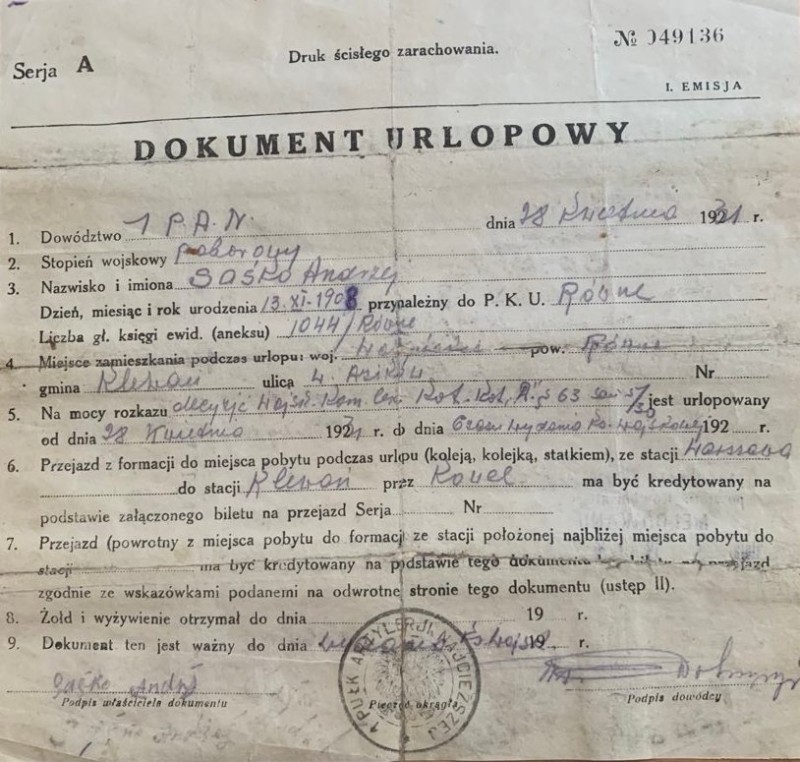 Serja A
Druk ścisłego zarachowania.
№ 049136
I. EMISJA
DOKUMENT URLOPOWY
1. Dowództwo 1 P.A.N. dnia 28 Kwietnia 1931 r.
2. Stopień wojskowy poborowy
3. Nazwisko i imiona SAŚKO Andrzej
Dzień, miesiąc i rok urodzenia 13.XI-1908 przynależny do P. K. U. Równe
Liczba gł. księgi ewid. (aneksu) 1044/Równe
4. Miejsce zamieszkania podczas urlopu: woj. pow. Równe
gmina Klewań ulica Nr
5. Na mocy rozkazu decyzję Wojsk. Kom. Lek. 63 jest urlopowany
od dnia 28 Kwietnia 1931 r. do dnia 192 r.
6. Przejazd z formacji do miejsca pobytu podczas urlopu (koleją, kolejką, statkiem), ze stacji Warszawa
do stacji Klewań przez Kowel ma być kredytowany na
podstawie załączonego biletu na przejazd Serja Nr
7. Przejazd (powrotny z miejsca pobytu do formacji ze stacji położonej najbliżej miejsca pobytu do
stacji ma być kredytowany na podstawie tego dokumentu
zgodnie ze wskazówkami podanemi na odwrotnej stronie tego dokumentu (ustęp II).
8. Żołd i wyżywienie otrzymał do dnia 19 r.
9. Dokument ten jest ważny do dnia 19 r.
Saśko Andrzej
Podpis właściciela dokumentu
Pieczęć okrągła
Podpis dowódcy
1 PUŁK ARTYLERJI NAJCIĘŻSZEJ